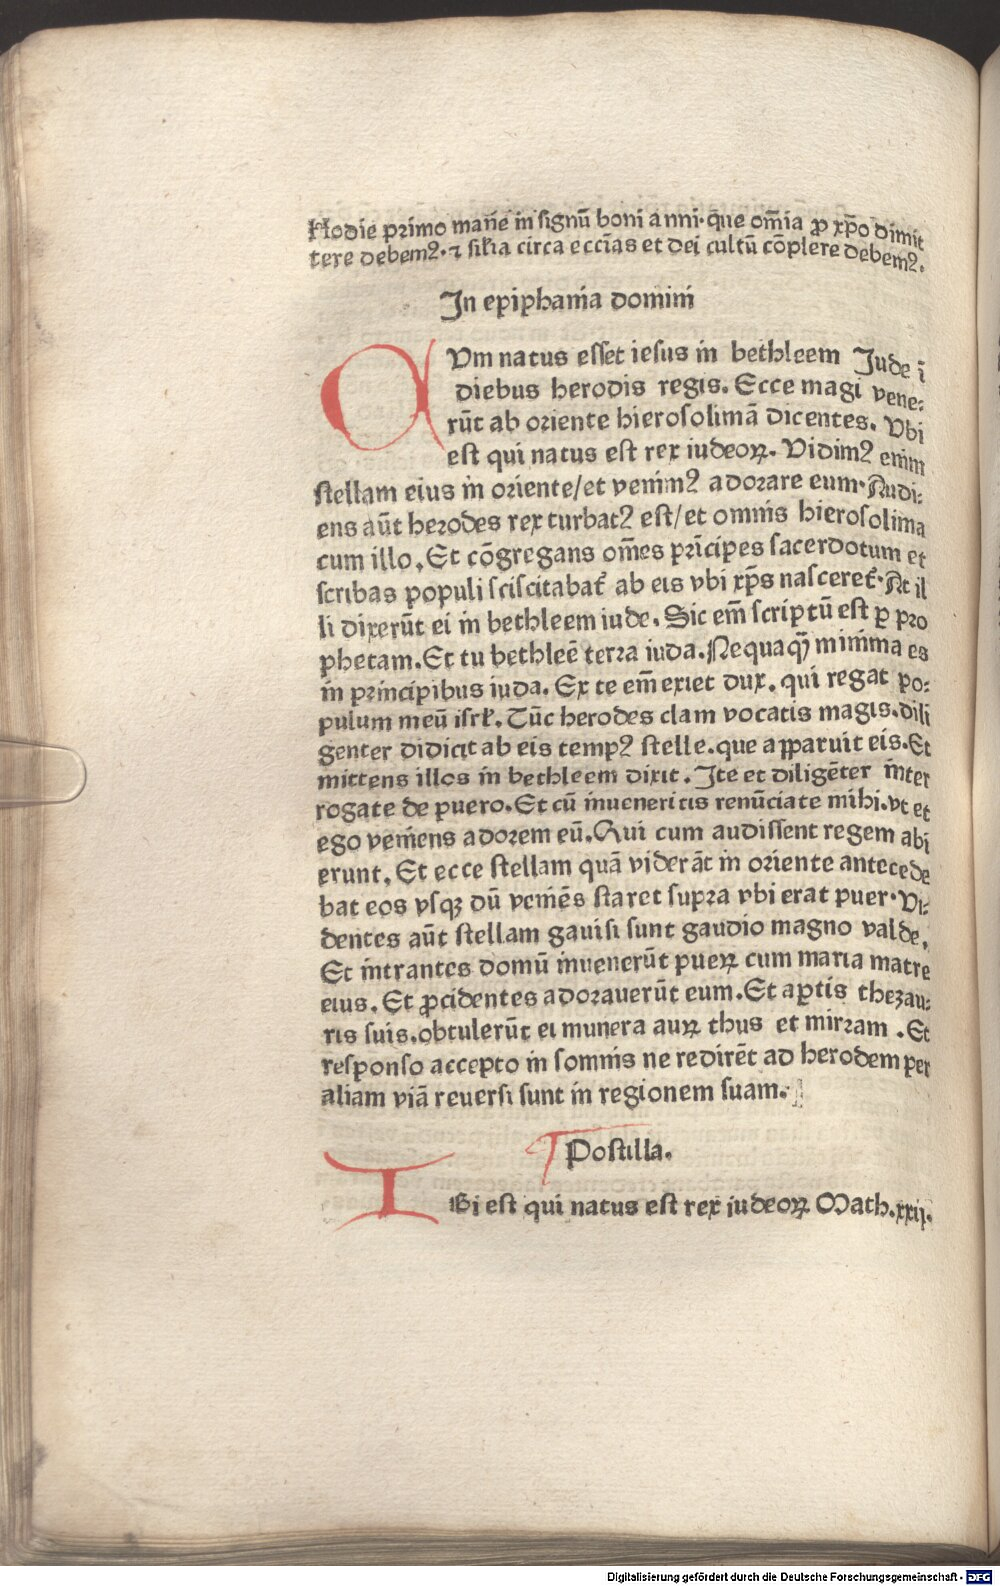 Hodie primo mane̅ in signū boni anni·que om̅ia ꝓ xp̅o dimit
tere debemꝰ·⁊ sil̅ia circa ecc̅ias et dei cultū cōplere debemꝰ.
In epiphania domini
Vm natus esset iesus in bethleem Jude ī
diebus herodis regis. Ecce magi vene⸗
rūt ab oriente hierosolimā dicentes. Vbi
est qui natus est rex iudeoꝝ. Vidimꝰ enim
stellam eius in oriente/et venimꝰ adorare eum·Audi⸗
ens aūt herodes rex turbatꝰ est/et omnis hierosolima
cum illo. Et cōgregans om̅es prīcipes sacerdotum et
scribas populi sciscitabat᷑ ab eis vbi xp̅s nasceret᷑·At il
li dixerūt ei in bethleem iude. Sic em̅ scriptū est ꝑ pro
phetam. Et tu bethleē terra iuda. Nequaqȝ minima es
in principibus iuda. Ex te em̅ exiet dux. qui regat po⸗
pulum meū isrł. Tūc herodes clam vocatis magis. dili
genter didicit ab eis tempꝰ stelle. que aꝑparuit eis. Et
mittens illos in bethleem dixit. Ite et diligēter inter
rogate de puero. Et cū inueneritis renūciate mihi. vt et
ego veniens adorem eū. Qui cum audissent regem abi
erunt. Et ecce stellam quā viderāt in oriente antecede
bat eos vsqȝ dū veniēs staret supra vbi erat puer·Vi⸗
dentes aūt stellam gauisi sunt gaudio magno valde.
Et intrantes domū inuenerūt pueꝝ cum maria matre
eius. Et ꝓcidentes adorauerūt eum. Et aꝑtis thezau⸗
ris suis. obtulerūt ei munera auꝝ thus et mirram. Et
responso accepto in somnis ne redirēt ad herodem per
aliam viā reuersi sunt in regionem suam.
Postilla.
Bi est qui natus est rex iudeoꝝ Math. xxij.
Digitalisierung gefördert durch die Deutsche Forschungsgemeinschaft - DFG